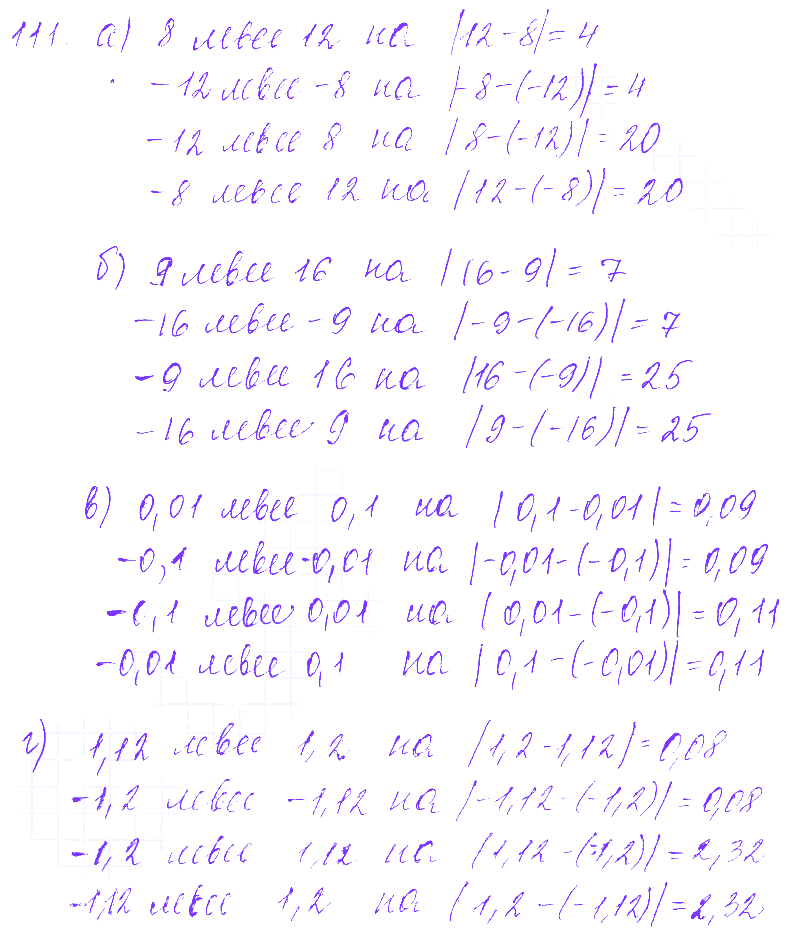 111. а) 8 левее 12 на |12-8|=4
-12 левее -8 на |-8-(-12)|=4
-12 левее 8 на |8-(-12)|=20
-8 левее 12 на |12-(-8)|=20
б) 9 левее 16 на |16-9|=7
-16 левее -9 на |-9-(-16)|=7
-9 левее 16 на |16-(-9)|=25
-16 левее 9 на |9-(-16)|=25
в) 0,01 левее 0,1 на |0,1-0,01|=0,09
-0,1 левее -0,01 на |-0,01-(-0,1)|=0,09
-0,1 левее 0,01 на |0,01-(-0,1)|=0,11
-0,01 левее 0,1 на |0,1-(-0,01)|=0,11
г) 1,12 левее 1,2 на |1,2-1,12|=0,08
-1,2 левее -1,12 на |-1,12-(-1,2)|=0,08
-1,2 левее 1,12 на |1,12-(-1,2)|=2,32
-1,12 левее 1,2 на |1,2-(-1,12)|=2,32